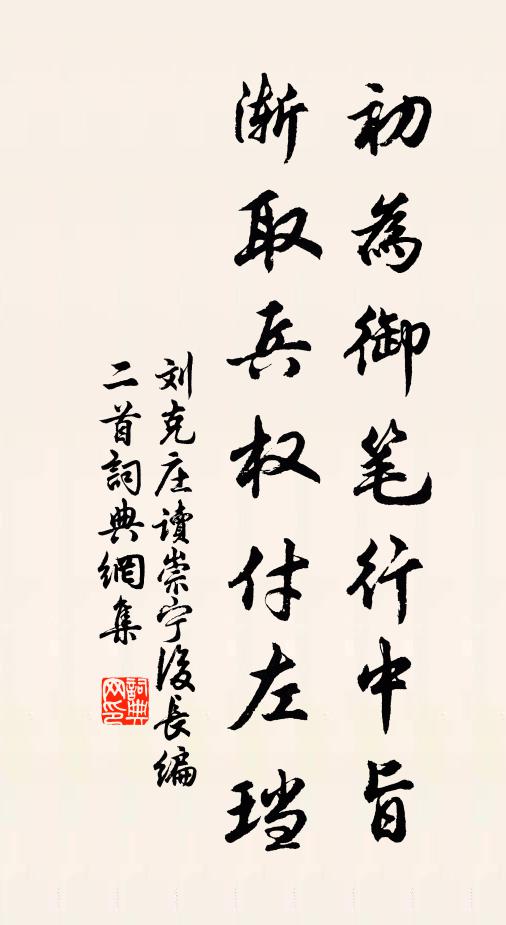 初為御笔行中旨
渐取兵权付左珰
刘克庄讀崇宁後長编
二首詞典網集
詞典网印